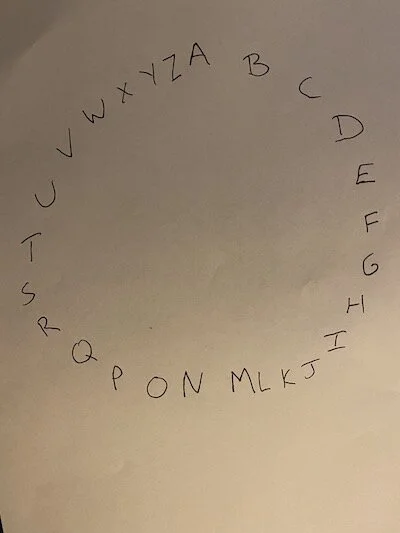 A B C D E F G H I J K L M N O P Q R S T U V W X Y Z